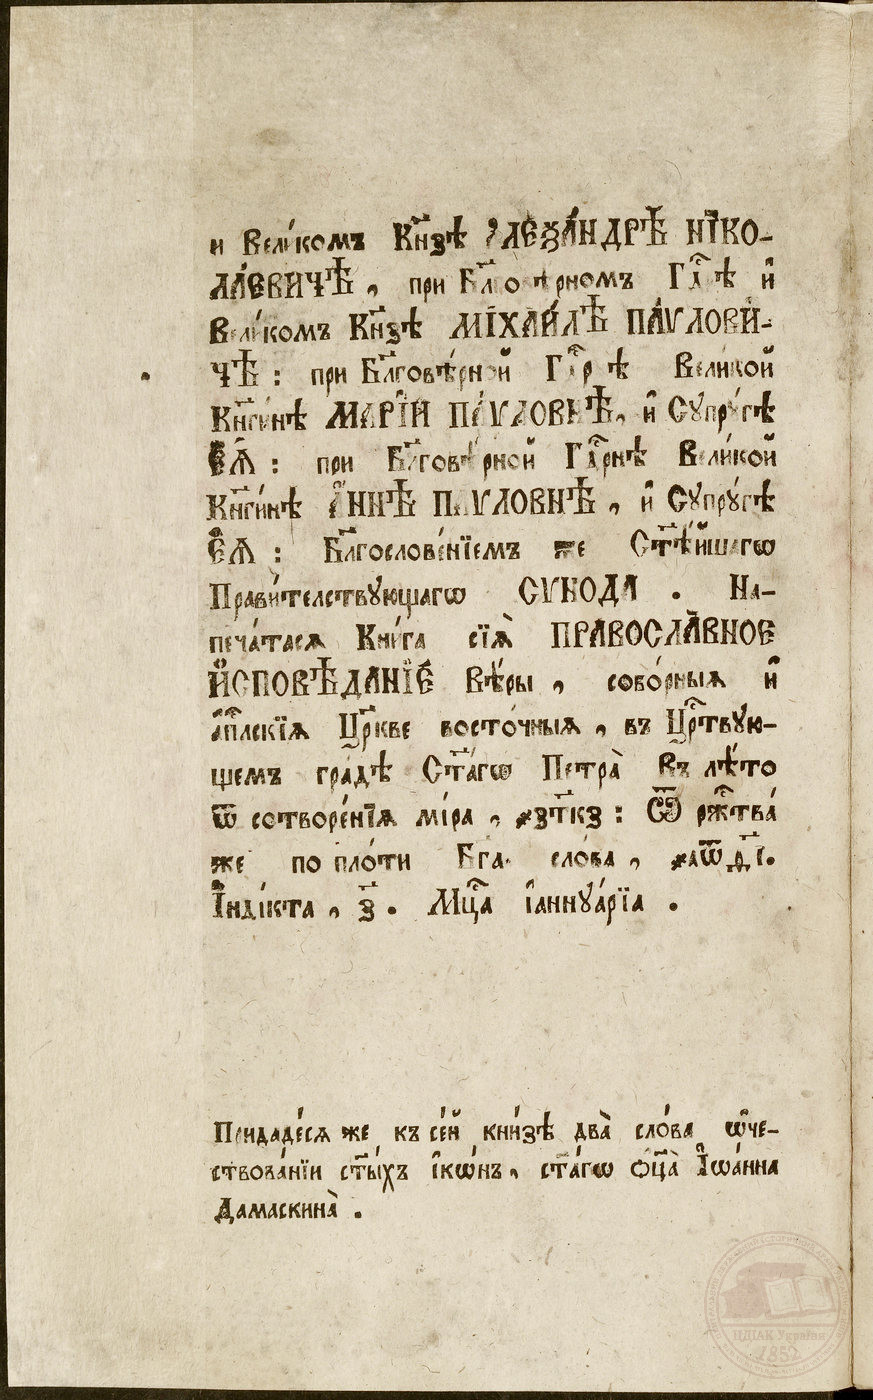 и҆ Вели́комъ Кн҃зѣ А҆ЛЕѮА́НДРѢ НЇКО-
ЛА́ЕВИЧѢ, при Бл҃говѣ́рномъ Гд҇рѣ и҆
Вели́комъ Кн҃зѣ МІХАИ́ЛѢ ПА́ѴЛОВИ-
ЧѢ: при Бл҃говѣ́рной Гд҇рнѣ Вели́кой
Кн҃ги́нѣ МАРІ́И ПА́ѴЛОВНѢ, и҆ Сꙋпрꙋ́гѣ
Е҆Ѧ̀: при Бл҃говѣ́рной Гд҇рнѣ Вели́кой
Кн҃ги́нѣ А҆́ННѢ ПА́ѴЛОВНѢ, и҆ Сꙋпрꙋ́гѣ
Е҆Ѧ̀: Бл҃гослове́нїемъ же Ст҃ѣ́йшагѡ
Прави́телствꙋющагѡ СѴНОДА. На-
печа́тасѧ Кни́га сїѧ̀ ПРАВОСЛА́ВНОЕ
И҆СПОВѢ́ДАНІЕ Вѣ́ры, собо́рныѧ и҆
а҆пⷭ҇лскїѧ Цр҃кве восто́чныѧ, въ Цр҇твꙋ́ю-
щемъ гра́дѣ Ст҃а́гѡ Петра̀ Въ лѣ́то
ѿ сотворе́нїѧ мі́ра, ҂зт҃кз: Ѿ рж҇тва́
же по пло́ти Бг҃а сло́ва, ҂аѿ д҃і.
І҆нді́кта, з҃. Мц҇а і҆аннꙋа́рїа.
Придаде́сѧ же къ се́й кни́зѣ два̀ сло́ва ѡ҆ че-
ствова́нїи ст҃ы́хъ і҆кѡ́нъ, ст҃а́гѡ ѻц҃а̀ І҆ѡа́нна
Дамаскина̀.
НДІАК України
1852